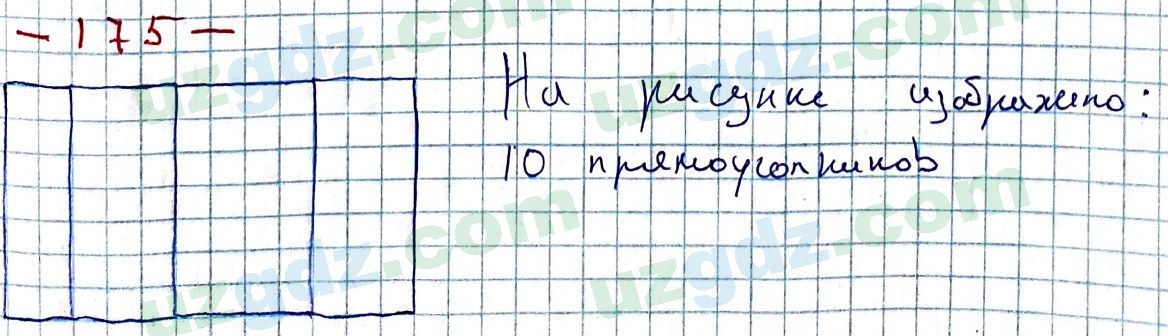 - 175 -
На рисунке изображено:
10 прямоугольников
uzgdz.com
uzgdz.com
uzgdz.com
uzgdz.com